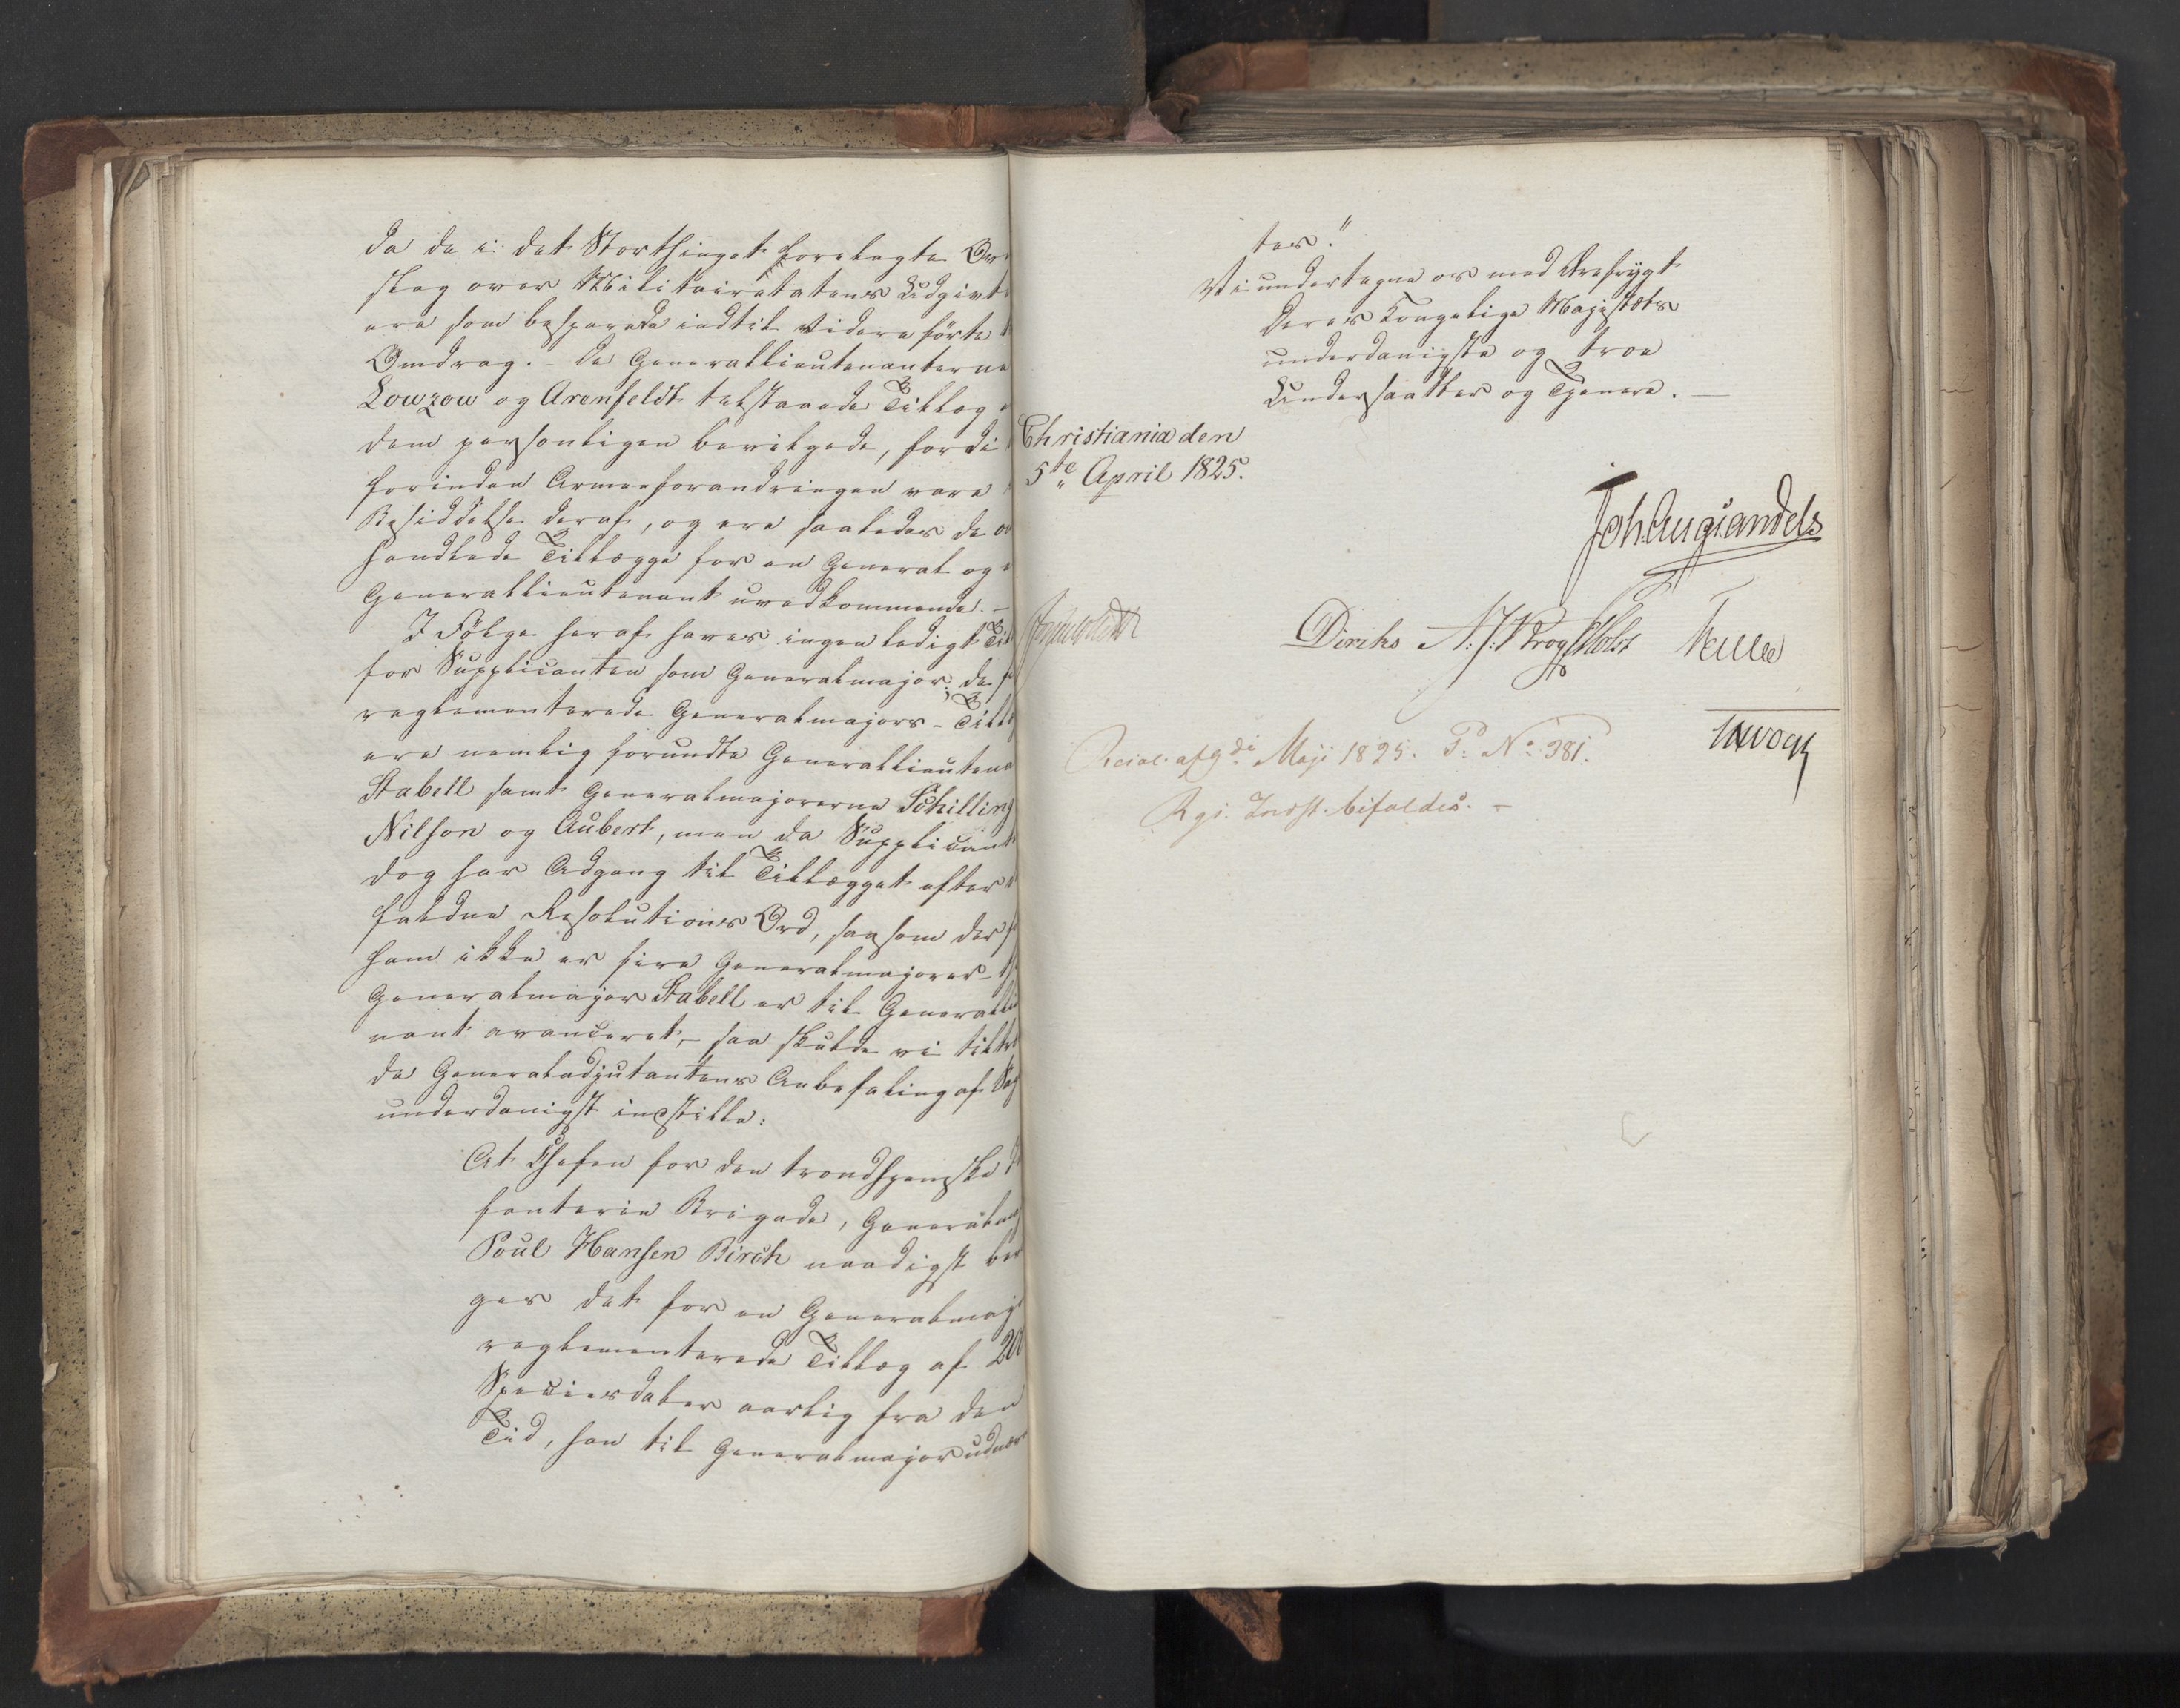 da de i det Storthinget forelagte Over
slag over Militairetatens Udgivt
ere som besparede indtil videre førte
Omdrag. - De Generallieutenanterne
Lowzow og Arenfeldt tilstaaede Tillæg
dem personligen bevilgede, fordi
forinden Armeeforandringen vare
Besiddelse deraf, og ere saaledes de
handlede Tillægge for en General og
Generallieutenant uvedkommende. -
I Følge heraf haves ingen ledigt Til
for Supplicanten som Generalmajor; de
reglementerede Generalmajors-Till
ere nemlig forundte Generallieutena
Stabell samt Generalmajorerne Schilling
Nilson og Aubert, men da Supplicant
dog har Adgang til Tillægget efter
faldne Resolutions Ord, saasom der
ham ikke er fire Generalmajorer -
Generalmajor Stabell er til Generallie
nant avanceret, - saa skulde vi tiltræ
de Generaladjutantens Anbefaling af
underdanigst indstille:
At Chefen for den trondhjemske
fanterie Brigade, Generalma
Poul Hansen Birch naadigst be
ges det for en Generalmaj
reglementerede Tillæg af 200
Speciesdaler aarlig fra den
Tid, han til Generalmajor udnæv
tes."
Vi undertegne os med Ærefrygt
Deres Kongelige Majestæts
underdanigste og troe
Undersaatter og Tjenere. -
Christiania den
5te April 1825.
Joh. Aug. Sandels
Diriks A: J: Krog PHolst Fallee
Resol. af 9di Maji 1825. P: No 381.
Rgs. Indst. bifaldes. -